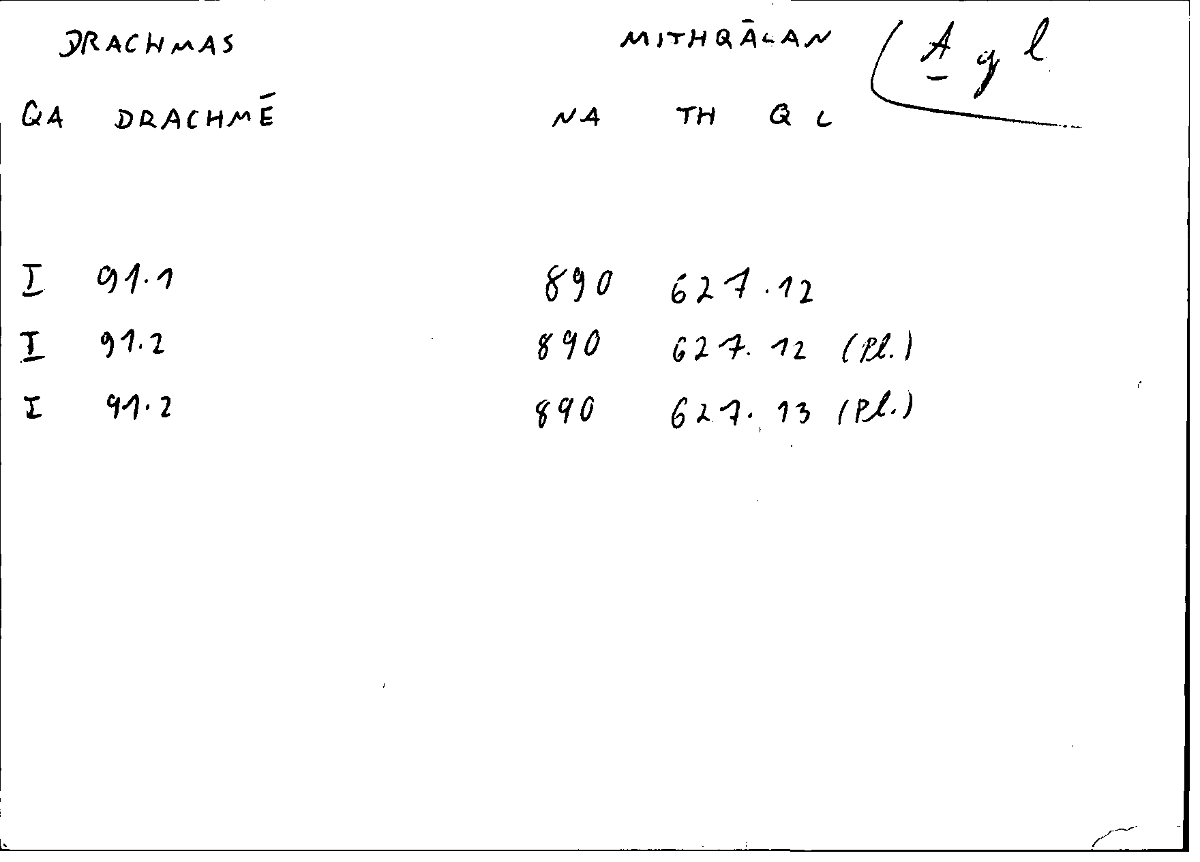 DRACHMAS MITHQĀLAN A g l
QA DRACHMĒ NA TH Q L
I 91.1 890 627.12
I 91.2 890 627.12 (Pl.)
I 91.2 890 627.13 (Pl.)